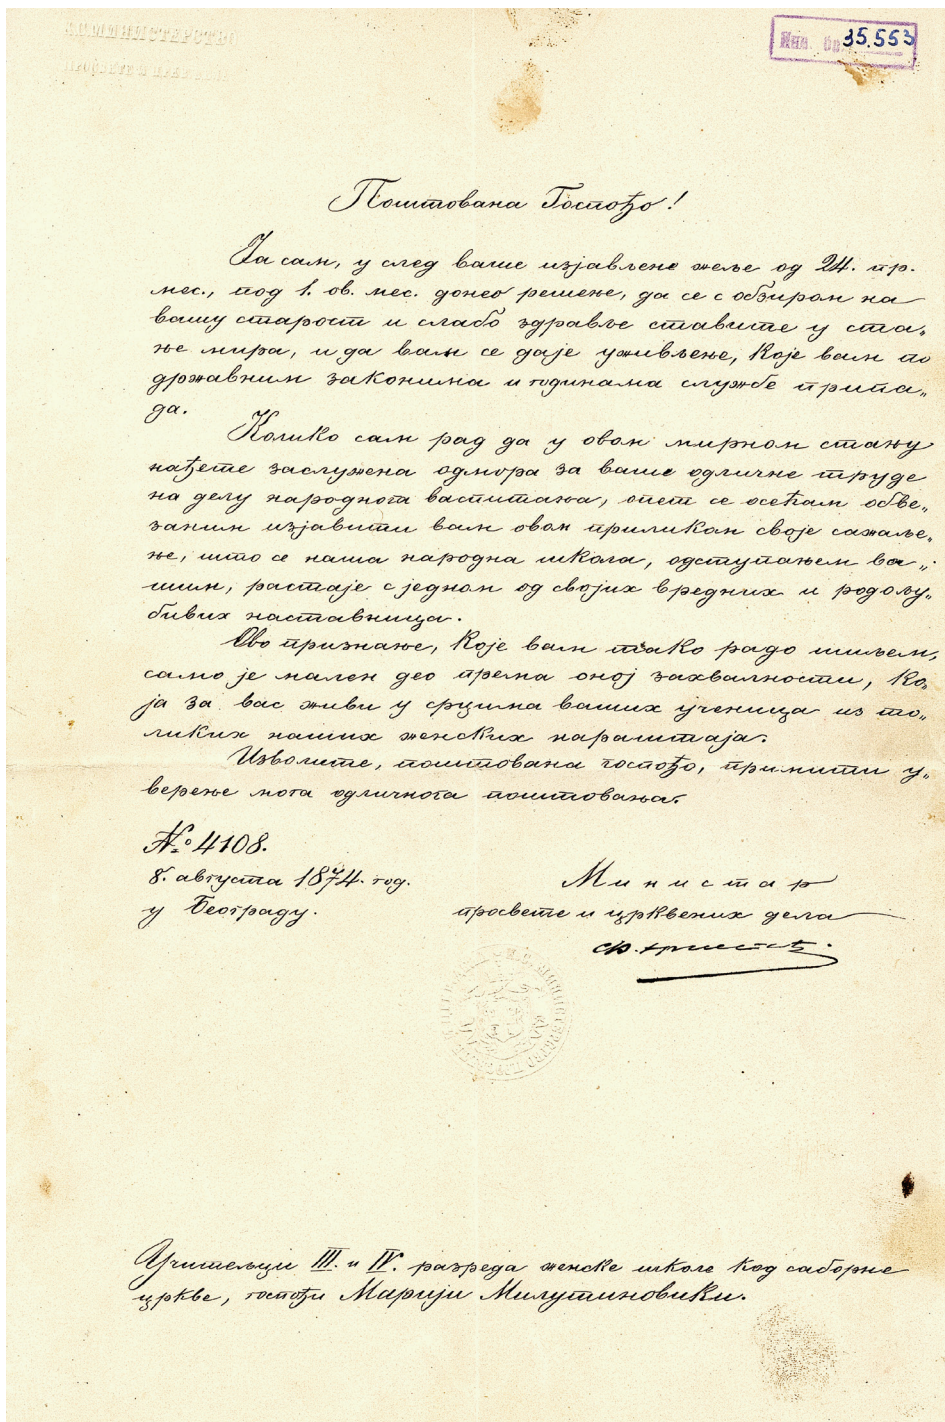 МИНИСТАРСТВО
Инв. бр. 35.553
Поштована Госпођо!
Ја сам, у след ваше изјављене жеље од 24. пр.
мес., под 1. ов. мес. донео решење, да се с обзиром на
вашу старост и слабо здравље ставите у ста„
ње мира, и да вам се даје уживљење, које вам по
државним законима и годинама службе припа„
да.
Колико сам рад да у овом мирном стању
нађете заслужена одмора за ваше одличне труде
на делу народнога васпитања, опет се осећам обве„
заним изјавити вам овом приликом своје сажаље„
ње, што се наша народна школа, одступањем ва„
шим, растаје с једном од својих вредних и родољу„
бивих наставница.
Ово признање, које вам тако радо шиљем,
само је мален део према оној захвалности, ко„
ја за вас живи у срцима ваших ученица из то„
ликих наших женских нараштаја.
Изволите, поштована госпођо, примити у„
верење мога одличнога поштовања.
№ 4108.
8. августа 1874. год.
у Београду.
Министар
просвете и црквених дела
Учитељци III. и IV. разреда женске школе код саборне
цркве, госпођи Марији Милутиновики.